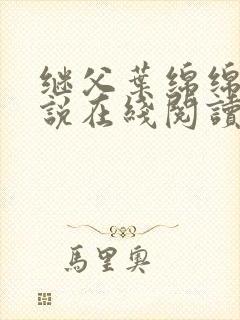 继父葉綿綿
説在綫閲讀
馬里奥